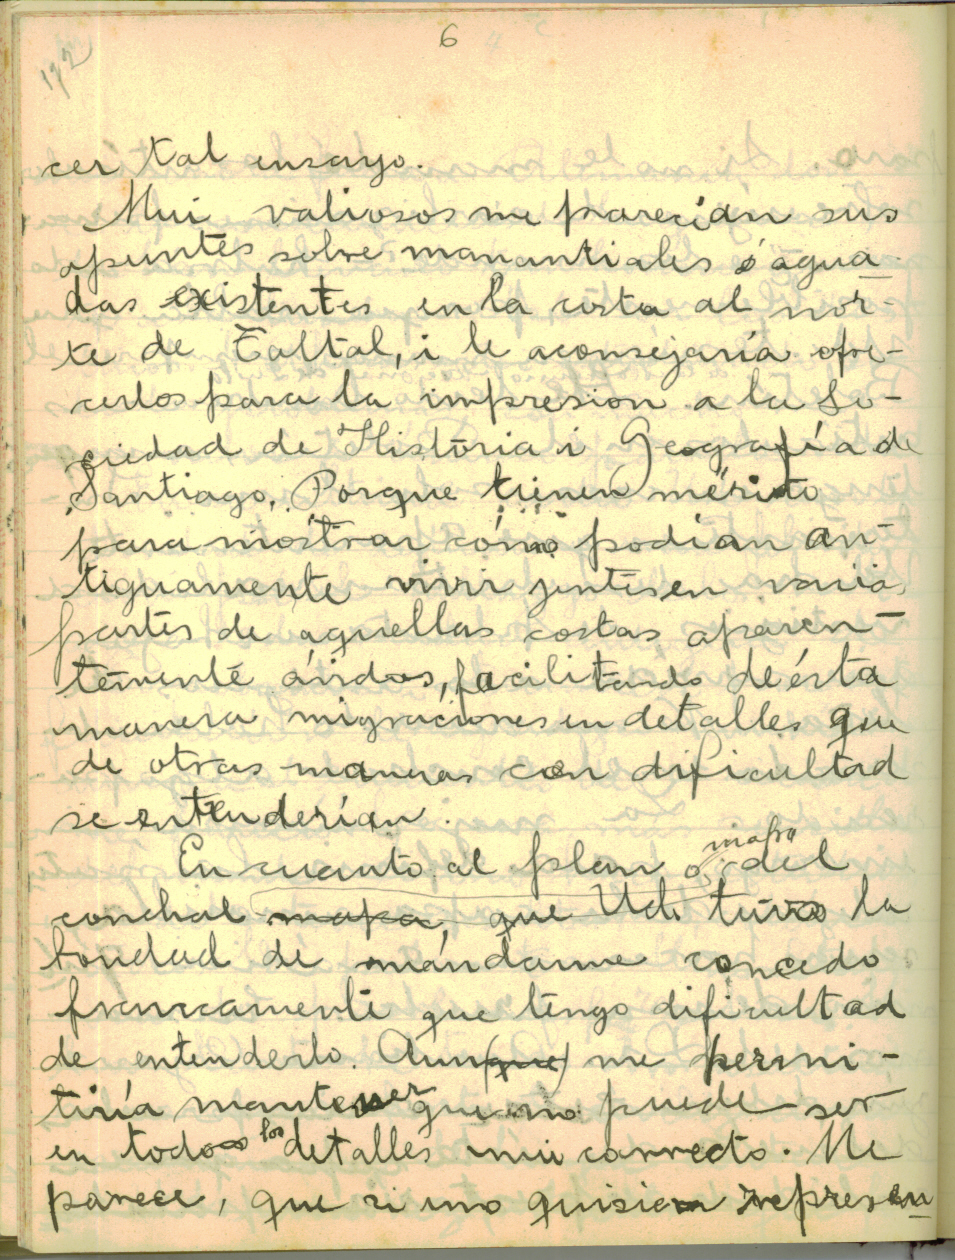 6
192
cer tal ensayo.
Mui valiosos me parecían sus
apuntes sobre manantiales ó agua-
das existentes en la costa al nor-
te de Taltal, i le aconsejaría ofre-
cerlos para la impresion a la So-
ciedad de História i Geografía de
Santiago. Porque tienen mérito
para mostrar cómo podían an-
tiguamente vivir jentes en varias
partes de aquellas costas aparen-
temente áridas, facilitando de ésta
manera migraciones en detalles que
de otras maneras con dificultad
se entenderían.
En cuanto al plan o mapa del
conchal mapa, que Ud. tuvo la
bondad de mandarme concedo
francamente que tengo dificultad
de entenderlo. Aun(que) me permi-
tiría mantener que no puede ser
en todos los detalles mui correcto. Me
parece, que si uno quisiera represen